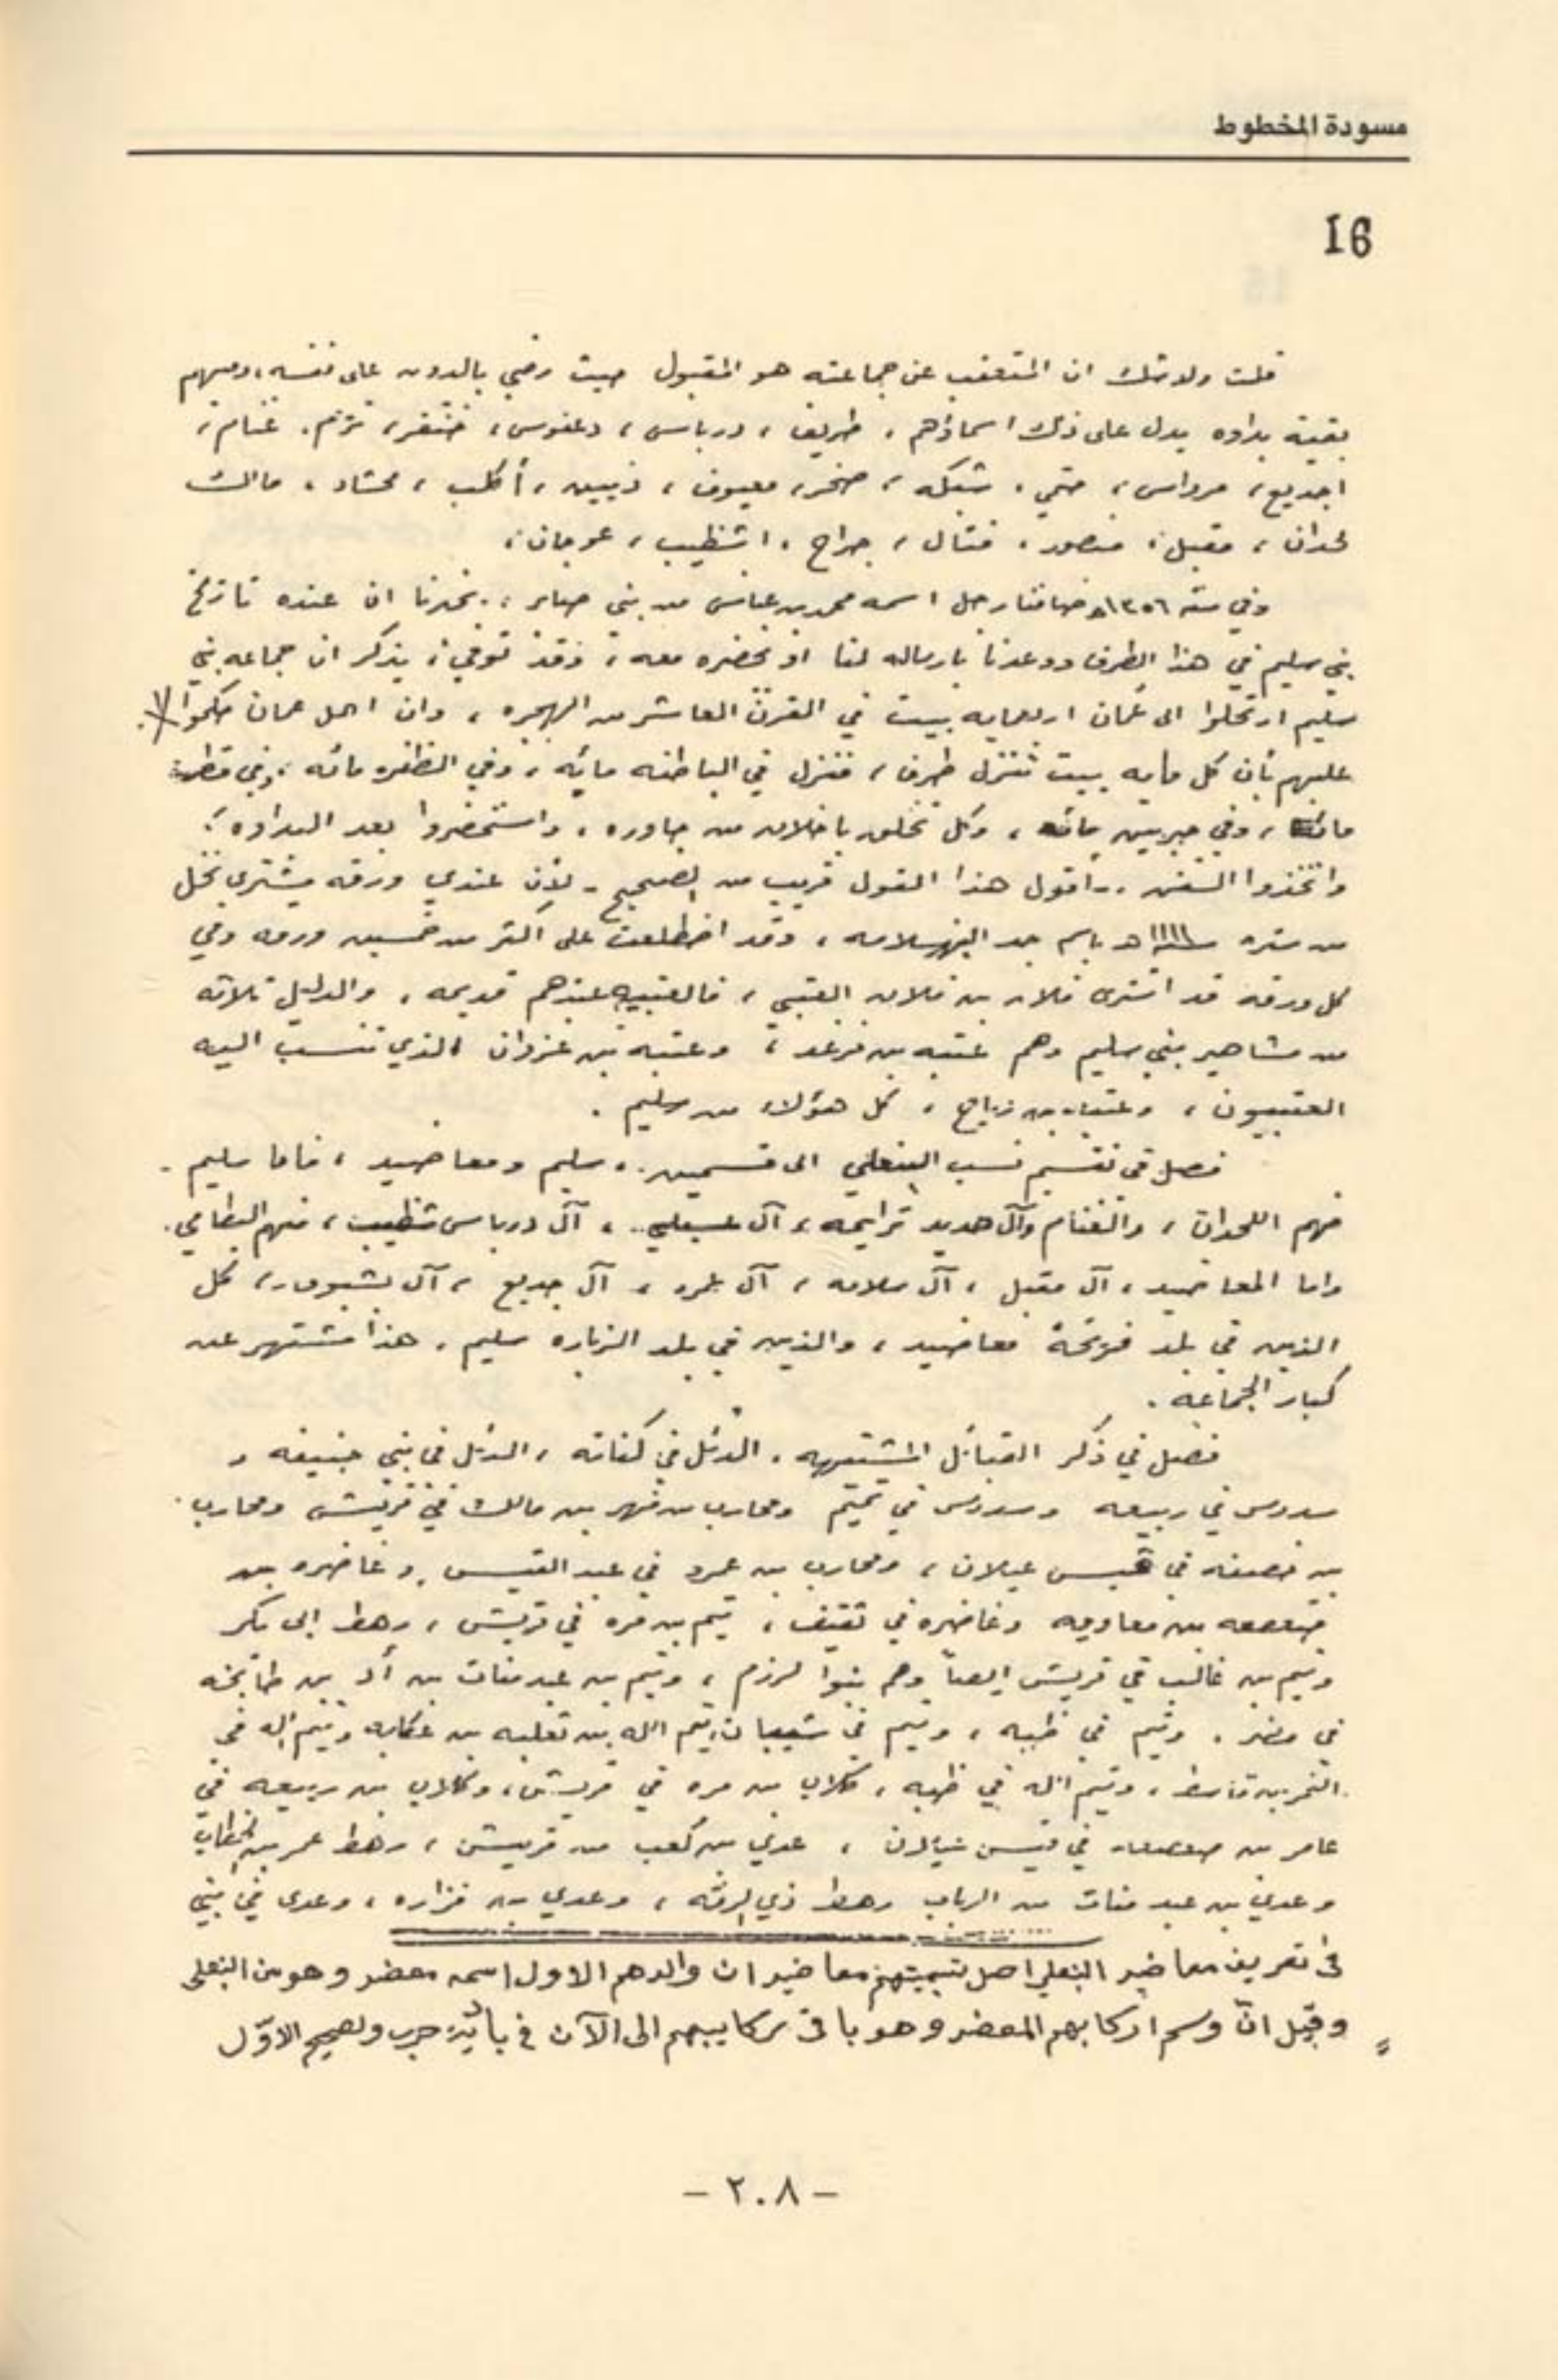 مسودة المخطوط
16
قلت ولا شك ان المتعقب عن جماعته هو المقبول حيث رضي بالدون على نفسه، وفيهم
بقية بداوه يدل على ذلك اسماؤهم، طريف، درباس، دعفوس، خنفر، غنام،
اجديع، مرداس، حتمي، شبكه، صخر، معيوف، ذيبين، أكلب، محشاد، مالك
لحدان، مقبل، منصور، فتال، جراح، اشظيب، عوجان،
وفي سنة ١٣٥٦ه ضافنا رجل اسمه محمد بن عباس من بني صابر، يخبرنا ان عنده تاريخ
بني سليم في هذا الطرف ووعدنا بارساله لنا او يحضره معه، وقد توفي، يذكر ان جماعه بني
سليم ارتحلوا الى عُمان اربعمايه بيت في القرن العاشر من الهجره، وان اهل عمان حكموا
عليهم بأن كل مأيه بيت تنزل طرف، فنزل في الباطنه مايه، وفي الظفره مائه، وفي قطر
مائة، وفي جبرين مائه، وكل تخلق باخلاق من جاوره، واستحضروا بعد البداوه،
واتخذوا السفن، - اقول هذا القول قريب من الصحيح - لأن عندي ورقه مشترى نخل
من ستره سنة ١١١١ه باسم جد البنهسلامه، وقد اضطلعت على اكثر من خمسين ورقه وفي
كل ورقه قد اشترى فلان بن فلان العتبي، فالعتبيه عندهم قديمه، والدليل ثلاثه
من مشاهير بني سليم وهم عتبه بن فرقد، وعتبه بن غزوان الذي تنسب اليه
العتبيون، وعتبه بن رياح، كل هؤلاء من سليم.
فصل في تقسيم نسب البنعلي الى قسمين، سليم ومعاضيد، فاما سليم
فهم اللحدان، والغنام وآل حديد ترايحه، آل عسيلي، آل درباس شظيب، منهم البظامي.
واما المعاضيد، آل مقبل، آل سلامه، آل عمرو، آل جديع، آل بشبومار، كل
الذين في بلد فريحة معاضيد، والذين في بلد الزباره سليم، هذا مشتهر عند
كبار الجماعه.
فصل في ذكر القبائل المشتبهه، الدئل في كنانه، الدئل في بني حنيفه و
سدوس في ربيعه وسدوس في تميم ومحارب بن فهر بن مالك في قريش ومحارب
بن خصفه في قيس عيلان، ومحارب بن عمرو في عبد القيس، وغاضره بن
صعصعه بن معاويه وغاضره في ثقيف، تيم بن مره في قريش، رهط ابي بكر
وتيم بن غالب في قريش ايضاً وهم بنوا لرزم، وتيم بن عبد منات بن أد بن طابخه
في مضر، وتيم في ظبه، وتيم في شيبان، تيم الله بن ثعلبه بن عكابه وتيم الله في
النمر بن قاسط، وتيم الله في ظبه، كلاب بن مره في قريش، وكلاب بن ربيعه في
عامر بن صعصعه في قيس عيلان، عدي بن كعب من قريش، رهط عمر بن الخطاب
وعدي بن عبد منات من الرباب رهط ذي الرمّه، وعدي بن فزاره، وعدى في بني
فى تعريف معاضيد البنعلي اصل تسميتهم معاضيد ان والدهم الاول اسمه معضد وهو من البنعلى
وقيل انّ وسم اركابهم المعضد وهو باقى بركايبهم الى الآن في بادية حرب ولصحيح الاوّل
- ٢٠٨ -